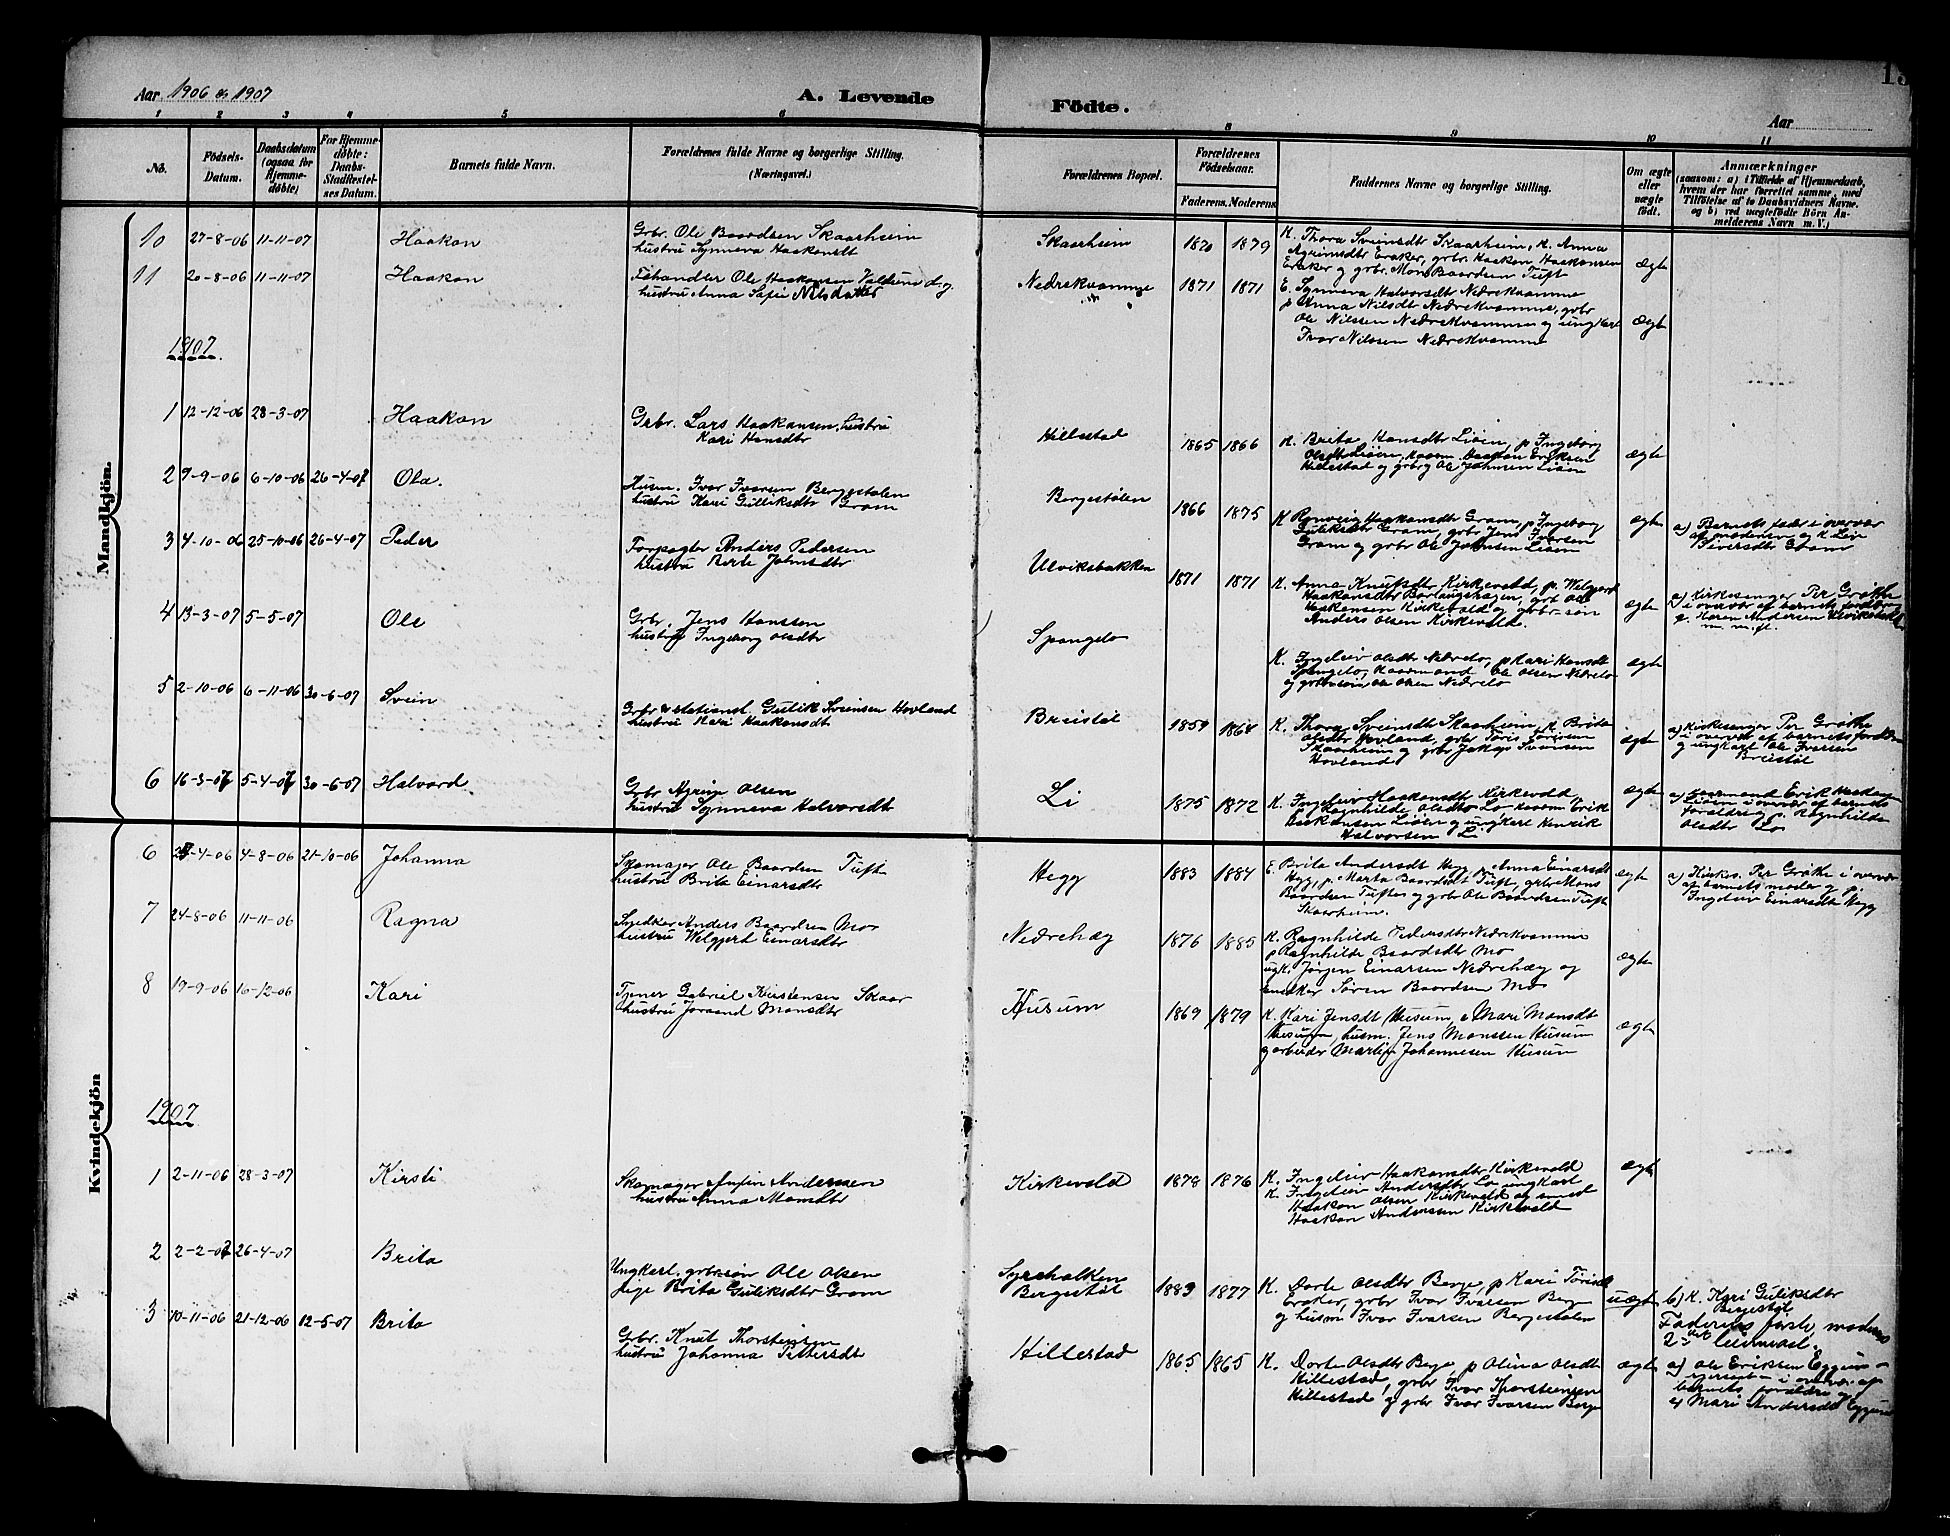 Aar 1906 og 1907
A. Levende Födte.
Aar
13
1 2 3 4 5 6 8 9 10 11
No.
Födsels-Datum.
Daabsdatum (ogsaa for Hjemmedöbte)
For Hjemmedöbte: Daabs-Stadfestelses Datum.
Barnets fulde Navn.
Forældrenes fulde Navne og borgerlige Stilling.
(Næringsvei.)
Forældrenes Bopæl.
Forældrenes Födselsaar.
Faderens. Moderens.
Faddernes Navne og borgerlige Stilling.
Om ægte eller uægte födt.
Anmærkninger
(saasom: a) i Tilfælde af Hjemmedaab,
hvem der har forrettet samme, med
Tilföielse af to Daabsvidners Navne.
og b) ved uægtefödte Börn Anmelderens Navn m. V.)
Mandkjön.
10 27-8-06 11-11-07 Haakon
Grbr. Ole Baardsen Skaarheim
hustru Synneva Haakensdt
Skaarheim 1870 1879
K. Thora Sveinsdtr Skaarheim, K. Anna
Agrimsdtr Eraker, grbr. Haaken Haakensen
Eraker og grbr. Mons Baardsen Tuft
ægte
11 20-8-06 11-11-07 Haakon
Féhandler Ole Haakensen
hustru Anna Sofie Nilsdatter
Nedrekvamme 1871 1871
E. Synneva Halvorsdtr Nedrekvamme
p Anna Nilsdtr Nedrekvamme, grbr
Ole Nilssen Nedrekvamme og ungkarl
Ivar Nilssen Nedrekvamme
ægte
1907
1 12-12-06 28-3-07 Haakon
Grbr. Lars Haakensen, hustru
Kari Hansdtr
Hillestad 1865 1866
K. Brita Hansdtr Liöen, p Ingeborg
Olsdtr Liöen, Haakon Eriksen
Hillestad og grbr Ole Johnsen Liöen
ægte
2 7-9-06 6-10-06 26-4-07 Ola.
Husm. Ivar Ivarsen Bergestølen
hustru Kari Gulliksdtr Gram
Bergestølen 1866 1875
K Ronveig Haakonsdtr Gram, p Ingeborg
Guliksdtr Gram, grbr Jens Ivarsen
Gram og grbr Ole Johnsen Liöen
ægte
a) Barnets fader i overvær
af moderen og K Livi
Siversdtr Gram
3 4-10-06 25-10-06 26-4-07 Peder
Forpagter Anders Pedersen
hustru Berte Johnsdtr
Ulviksbakken 1871 1871
K. Anna Knutsdtr Kirkevold, p. Welgjerd
Haakonsdtr Borlaugshagen, grbr Ole
Haakensen Kirkevold og grbr-søn
Anders Olsen Kirkevold.
ægte
a) Kirkesanger Per Grøthe
i overvær af barnets fordldre
g. Karen Andersen Ulviksbakk
m. m. fl.
4 13-3-07 5-5-07 Ole
Grbr. Jens Hanssen
hustru Ingeborg Olsdtr
Spangelo
K. Ingeleiv Olsdtr Nedrelo, p Kari Hansdt
Spangelo, Ole Olsen Nedrelo
og grbr.søn Ole Olsen Nedrelo
ægte
5 2-10-06 6-11-06 30-6-07 Svein
Grbr & stationsf. Gulik Sveinsen Hovland
hustru Kari Haakonsdt
Breistøl 1859 1868
K. Thora Sveinsdt Skaarheim, K. Brita
Olsdtr Hovland, grbr Tøris Tørisen
Skaarheim og grbr Jakop Sveinsen
Hovland
ægte
a) Kirkesanger Per Grøthe
i overvær af barnets fordldre
og ungkarl Ole Iversen
Breistøl
6 16-3-07 5-4-07 30-6-07 Halvard
Grbr Agrim Olsen
hustru Synneva Halvorsdt
Li 1875 1872
K. Ingeleiv Haakonsdt Kirkevold
p Ragnhilde Olsdtr Lo Erik
Haakensen Liöen og ungkarl Henrik
Halvorsen Li
ægte
a) Erik Haaken
Liöen i overvær af barnets
forældre og p. Ragnhilde
Olsdtr Lo
Kvindekjön
6 -4-06 4-8-06 21-10-06 Johanna
Skomager Ole Baardsen Tuft
hustru Brita Einarsdtr
Hegg 1883 1884
E. Brita Andersdt Hegg p Anna Einarsdt
Hegg, p. Marta Baardsdt Tuft, grbr Mons
Baardsen Tuften og grbr Ole Baardsen Tuft
Skaarheim.
ægte
a) Kirkes. Per Grøthe i overvær
af barnets moder og p.
Ingeleiv Einarsdtr Hegg
7 24-8-06 11-11-06 Ragna
Snedker Anders Baardsen Mo
hustru Welgjerd Einarsdtr
Nedrehæg 1876 1885
K. Ragnhilde Pedersdtr Nedrekvamme
p Ragnhilde Baardsdtr Mo
ugk. Jörgen Einarsen Nedrehæg og
snedker Sören Baardsen Mo
ægte
8 19-9-06 16-12-06 Kari
Tjener Gabriel Kristensen Skaar
hustru Joraand Monsdtr
Husum 1869 1879
K. Kari Jensdt Husum, e Mari Monsdt
Husum, husm. Jens Monssen Husum
og arbeider Martin Johannesen Husum
ægte
1907
1 2-11-06 28-3-07 Kirsti
Skomager Anfin Andersen
hustru Anna Monsdtr
Kirkevold 1878 1876
K. Ingeleiv Haakonsdtr Kirkevold
K. Ingeleiv Andersdtr Lo ungkarl
Haakon Olsen Kirkevold og smed
Haakon Andersen Kirkevold
ægte
2 2-2-07 26-4-07 Brita
Ungkarl, grbr.søn Ole Olsen
pige Brita Guliksdtr Gram
Bergestøl 1883 1877
K. Dorte Olsdtr Berge, p Kari Tørisdt
Eraker, grbr Ivar Ivarsen Berge
og husm Ivar Ivarsen Bergestølen
uægte
b) K. Kari Guliksdtr
Bergestøl
Faderens første, moderens
2det leiermaal.
3 10-11-06 21-12-06 12-5-07 Brita
Grbr. Knut Thorsteinsen
hustru Johanna Pettersdt
Hillestad 1865 1865
K. Dorte Olsdtr Berge, p Olina Olsdt
Hillestad, grbr Ivar Thorsteinsen
Hillestad og grbr Ivar Ivarsen Berge
ægte
a) Ole Eriksen Eggum
i overvær af
barnets forældre og
Mari Andersdt Eggum